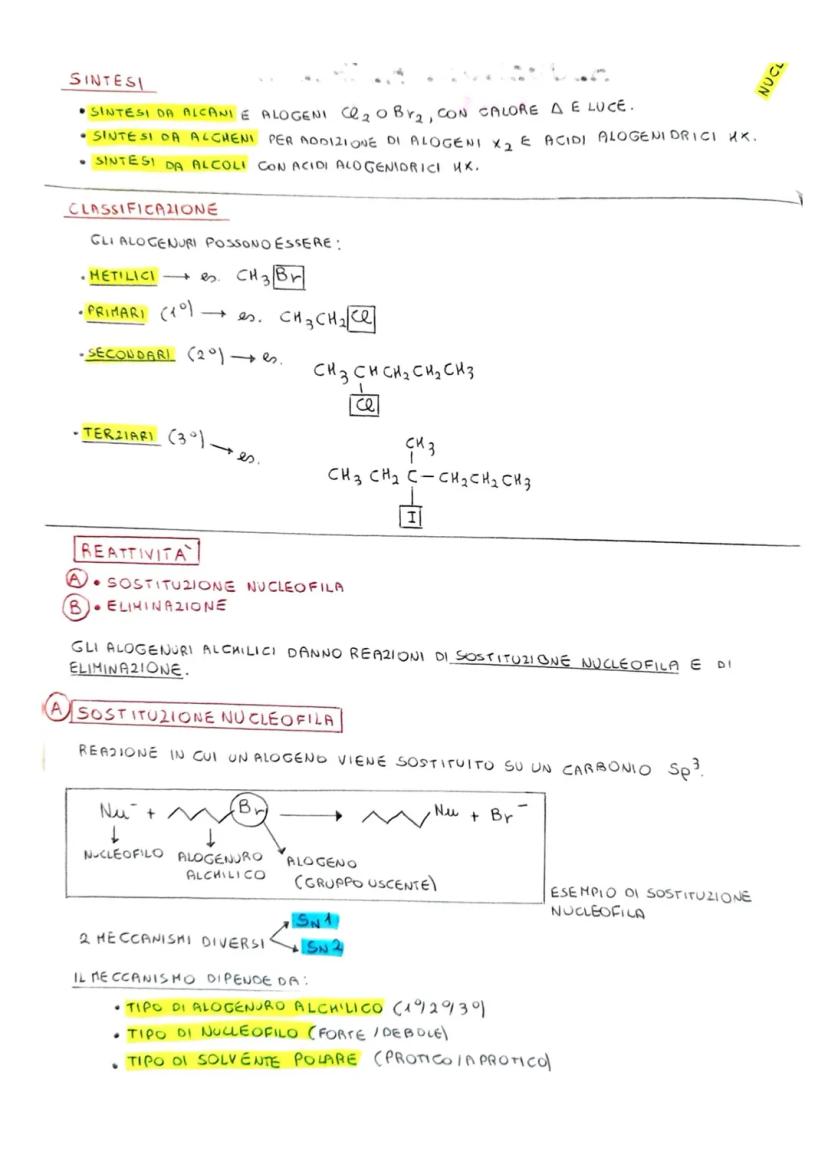 NUCL
SINTESI
• SINTESI DA ALCANI E ALOGENI Cl₂ O Br₂, CON CALORE Δ E LUCE.
• SINTESI DA ALCHENI PER ADDIZIONE DI ALOGENI X₂ E ACIDI ALOGENIDRICI HX.
• SINTESI DA ALCOLI CON ACIDI ALOGENIDRICI HX.
CLASSIFICAZIONE
GLI ALOGENURI POSSONO ESSERE:
• METILICI → es. CH₃Br
• PRIMARI (1°) → es. CH₃CH₂Cl
• SECONDARI (2°) → es.
CH₃CHCH₂CH₂CH₃
Cl
• TERZIARI (3°) → es.
CH₃
CH₃CH₂C–CH₂CH₂CH₃
I
REATTIVITÀ
A • SOSTITUZIONE NUCLEOFILA
B • ELIMINAZIONE
GLI ALOGENURI ALCHILICI DANNO REAZIONI DI SOSTITUZIONE NUCLEOFILA E DI
ELIMINAZIONE.
A SOSTITUZIONE NUCLEOFILA
REAZIONE IN CUI UN ALOGENO VIENE SOSTITUITO SU UN CARBONIO Sp³.
Nu⁻ + Br → Nu + Br⁻
NUCLEOFILO ALOGENURO ALOGENO
ALCHILICO (GRUPPO USCENTE)
ESEMPIO DI SOSTITUZIONE
NUCLEOFILA
SN1
2 MECCANISMI DIVERSI
SN2
IL MECCANISMO DIPENDE DA:
• TIPO DI ALOGENURO ALCHILICO (1°/2°/3°)
• TIPO DI NUCLEOFILO (FORTE/DEBOLE)
• TIPO DI SOLVENTE POLARE (PROTICO/APROTICO)